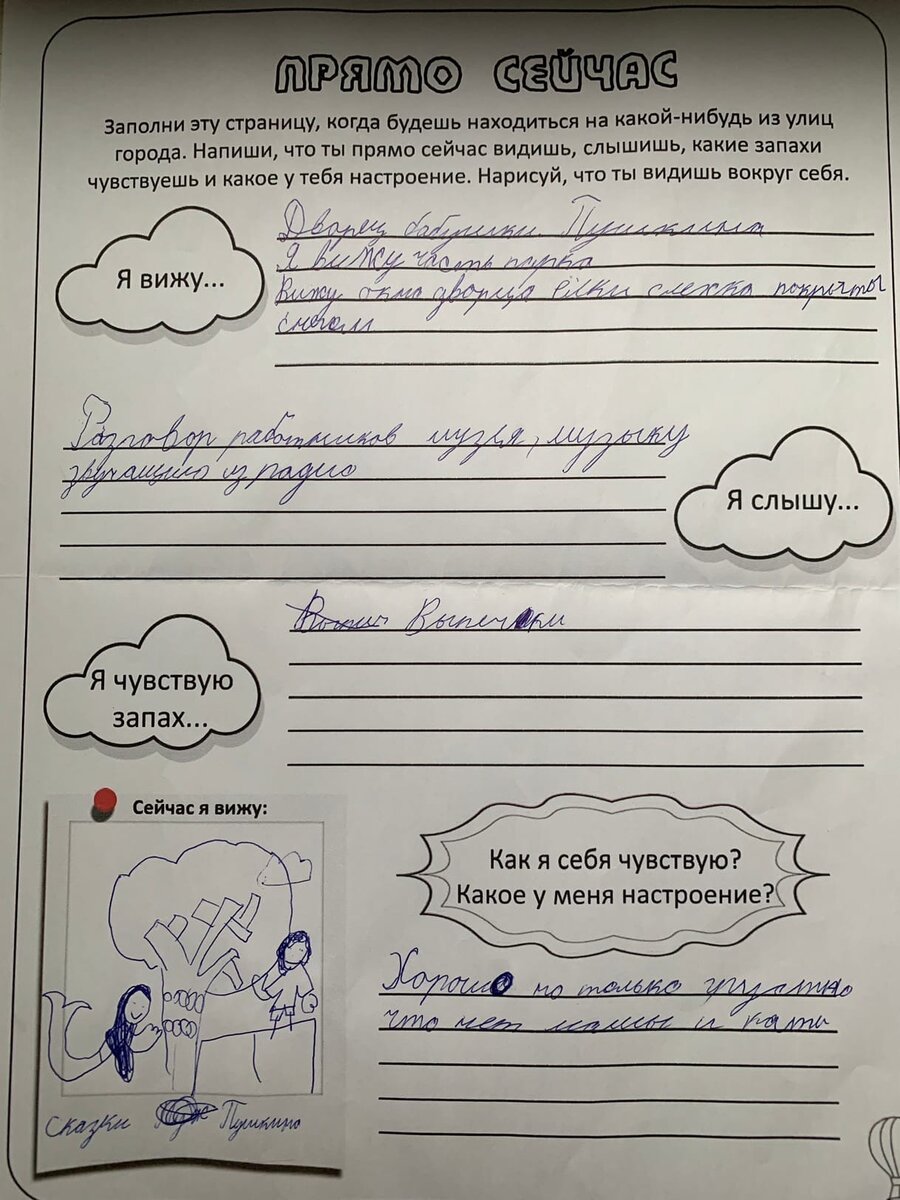 ПРЯМО СЕЙЧАС
Заполни эту страницу, когда будешь находиться на какой-нибудь из улиц
города. Напиши, что ты прямо сейчас видишь, слышишь, какие запахи
чувствуешь и какое у тебя настроение. Нарисуй, что ты видишь вокруг себя.
Я вижу...
Дворец бабушки Пушкина
Я вижу часть парка
Вижу окно дворца ёлки слехка покрыты
снегом
Разговор работников музея, музыку
звучащию из радио
Я слышу...
Я чувствую
запах...
Выпечки
Сейчас я вижу:
Сказки Пушкино
Как я себя чувствую?
Какое у меня настроение?
Хорошо но только грустно
что нет мамы и кати